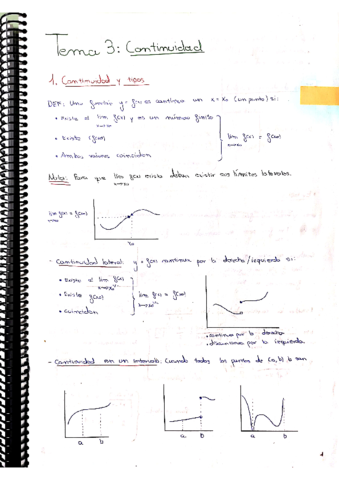 Tema 3: Continuidad
1. Continuidad y tipos
DEF: Una función y=f(x) es continua en x=x₀ (un punto) si:
• Existe el lim f(x) y es un número finito
x→x₀
• Existe f(x₀)
lim f(x) = f(x₀)
x→x₀
• Ambos valores coinciden
Nota: Para que lim f(x) exista deben existir sus límites laterales.
x→x₀
lim f(x) = f(x₀)
x→x₀
x₀
- Continuidad lateral: y=f(x) continua por la derecha/izquierda si:
• Existe el lim f(x)
• Existe f(x₀)
lim f(x) = f(x₀)
• Coinciden
• continua por la derecha
• discontinua por la izquierda
- Continuidad en un intervalo. Cuando todos los puntos de (a,b) lo son
a b
a b
a b